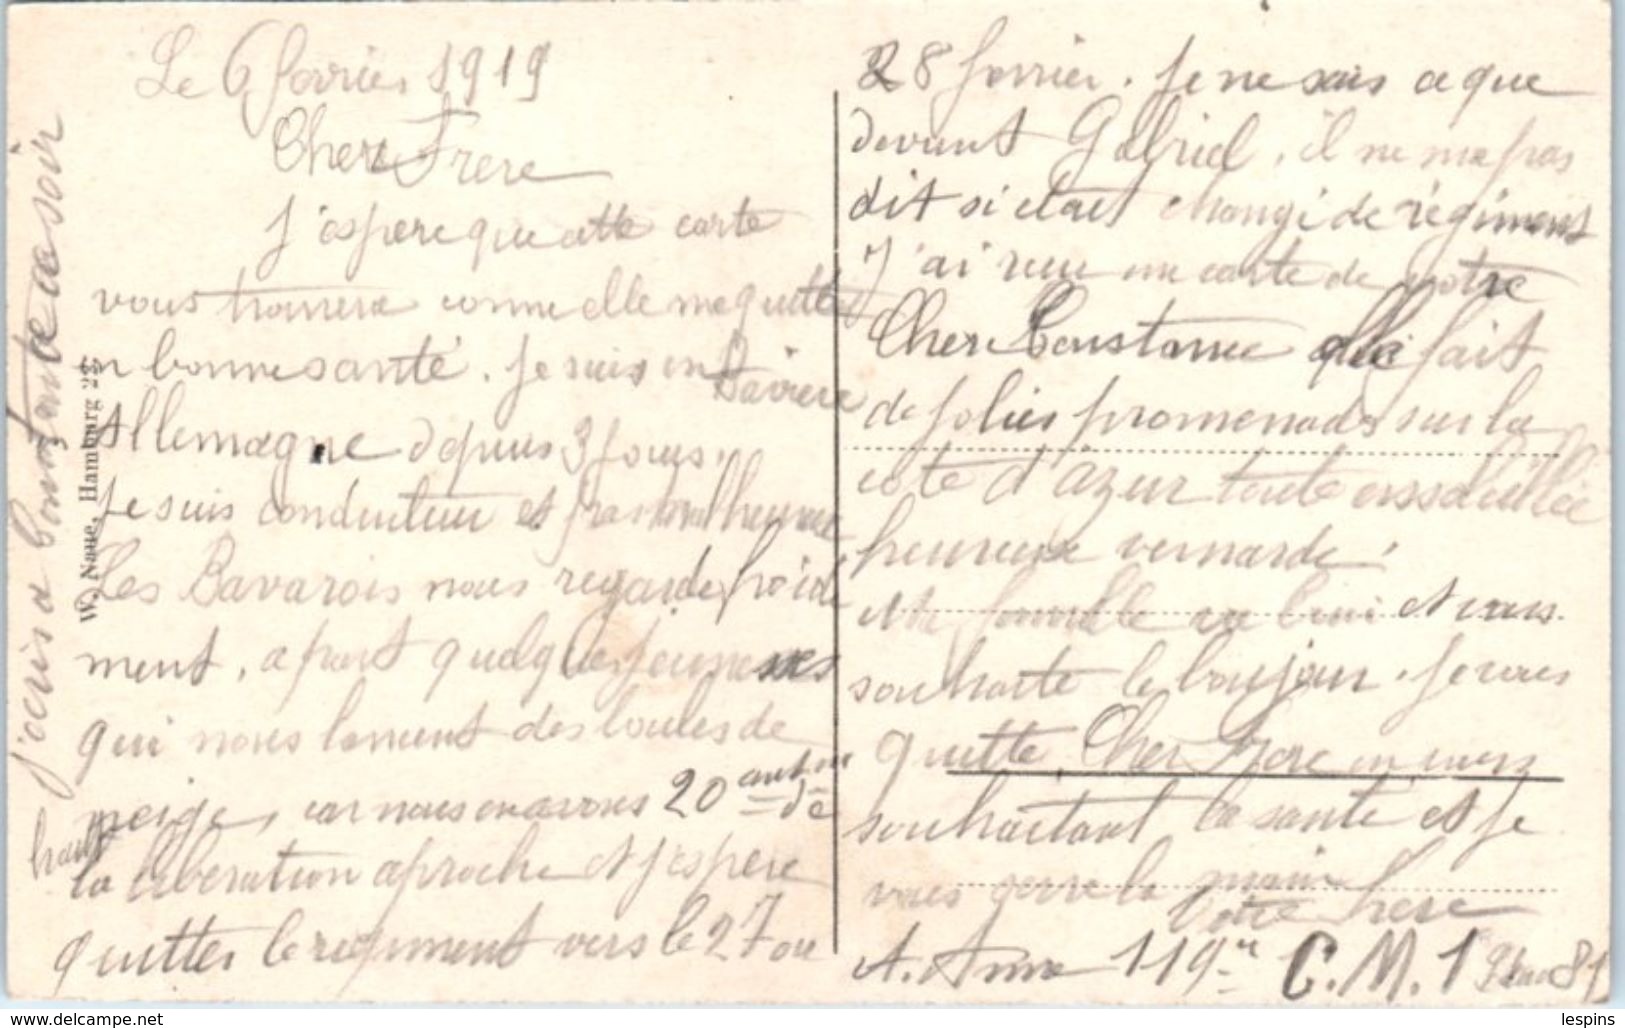 Le 6 fevrier 1919
Cher Frere
J'espere que cette carte
vous trouvera comme elle me quitte
en bonne santé. Je suis en Baviere
Allemagne depuis 3 jours.
Je suis conducteur et pas malheureux
Les Bavarois nous regarde froide
ment, a part quelques jeunesses
qui nous lancent des boules de
neige, car nous en avons 20 cent m de
haut
la liberation aproche et j'espere
quitter le regiment vers le 27 ou
28 fevrier. Je ne sais ce que
devient Gabriel, il ne ma pas
dit si etait changé de régiment
J'ai recu une carte de notre
Cher Constance elle fait
de jolies promenades sur la
cote d'azur toute
heureuse
et vous
souhaite le bonjour. Je vous
quitte Cher Frere en vous
souhaitant la santé et je
vous serre la main
Votre frere
A. 119 C.M.1 81
J'ecris a Constance ce soir
W. Naue, Hamburg 23
lespins